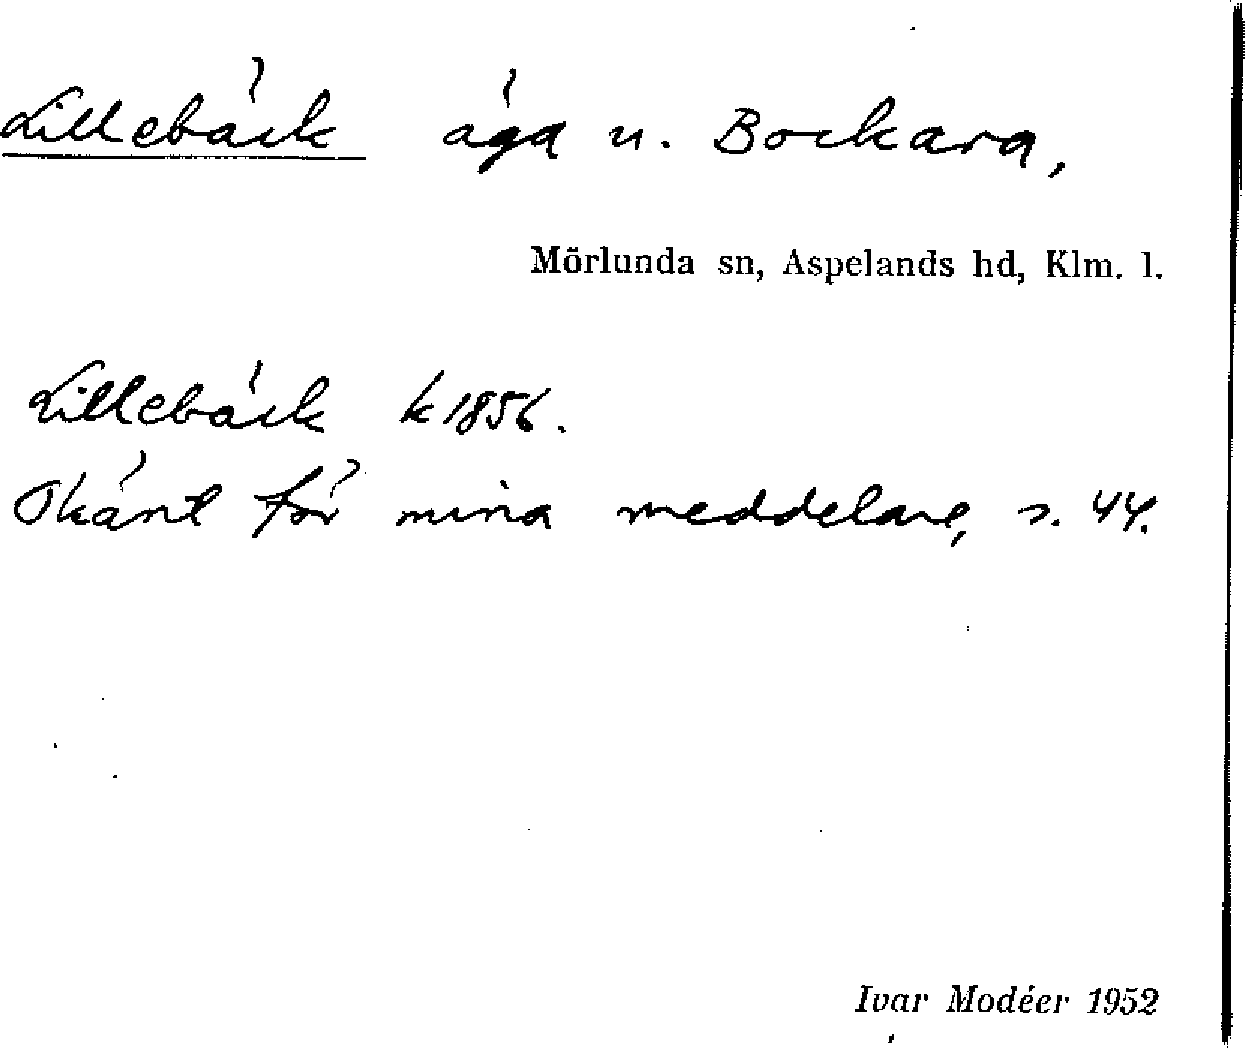 Lillebäck äga u. Bockara,
Mörlunda sn, Aspelands hd, Klm. l.
Lillebäck k 1856.
Okänt för mina meddelare, s. 44.
Ivar Modéer 1952